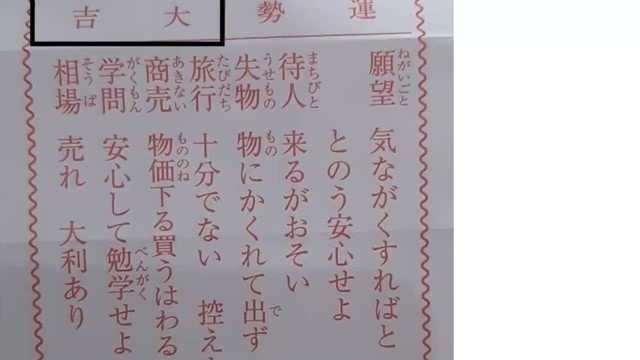 運勢 大吉
願望 気ながくすればと
とのう安心せよ
待人 来るがおそい
失物 物にかくれて出ず
旅行 十分でない 控え
商売 物価下る買うはわる
学問 安心して勉学せよ
相場 売れ 大利あり
ねがいごと
まちびと
うせもの
たびだち
あきない
がくもん
そうば
もの
で
もののね
べんがく